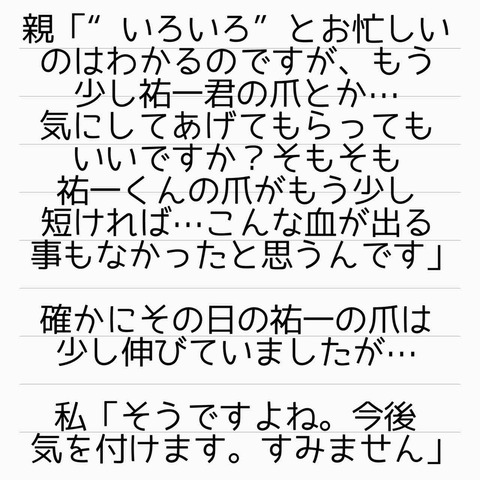 親「“いろいろ”とお忙しい
のはわかるのですが、もう
少し祐一君の爪とか…
気にしてあげてもらっても
いいですか？そもそも
祐一くんの爪がもう少し
短ければ…こんな血が出る
事もなかったと思うんです」
確かにその日の祐一の爪は
少し伸びていましたが…
私「そうですよね。今後
気を付けます。すみません」